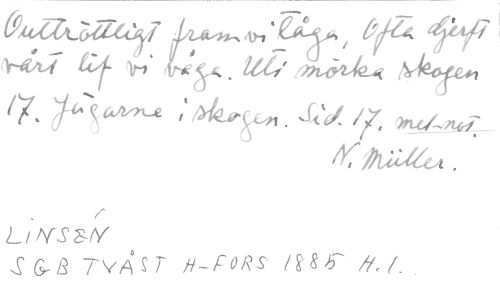 Outtröttligt fram vi tåga, Ofta djerft
vårt lif vi våga. Uti mörka skogen
17. Jägarne i skogen. Sid. 17. mel-not.
N. Müller.
LINSÉN
SGB TVÅST H-FORS 1885 H.1.